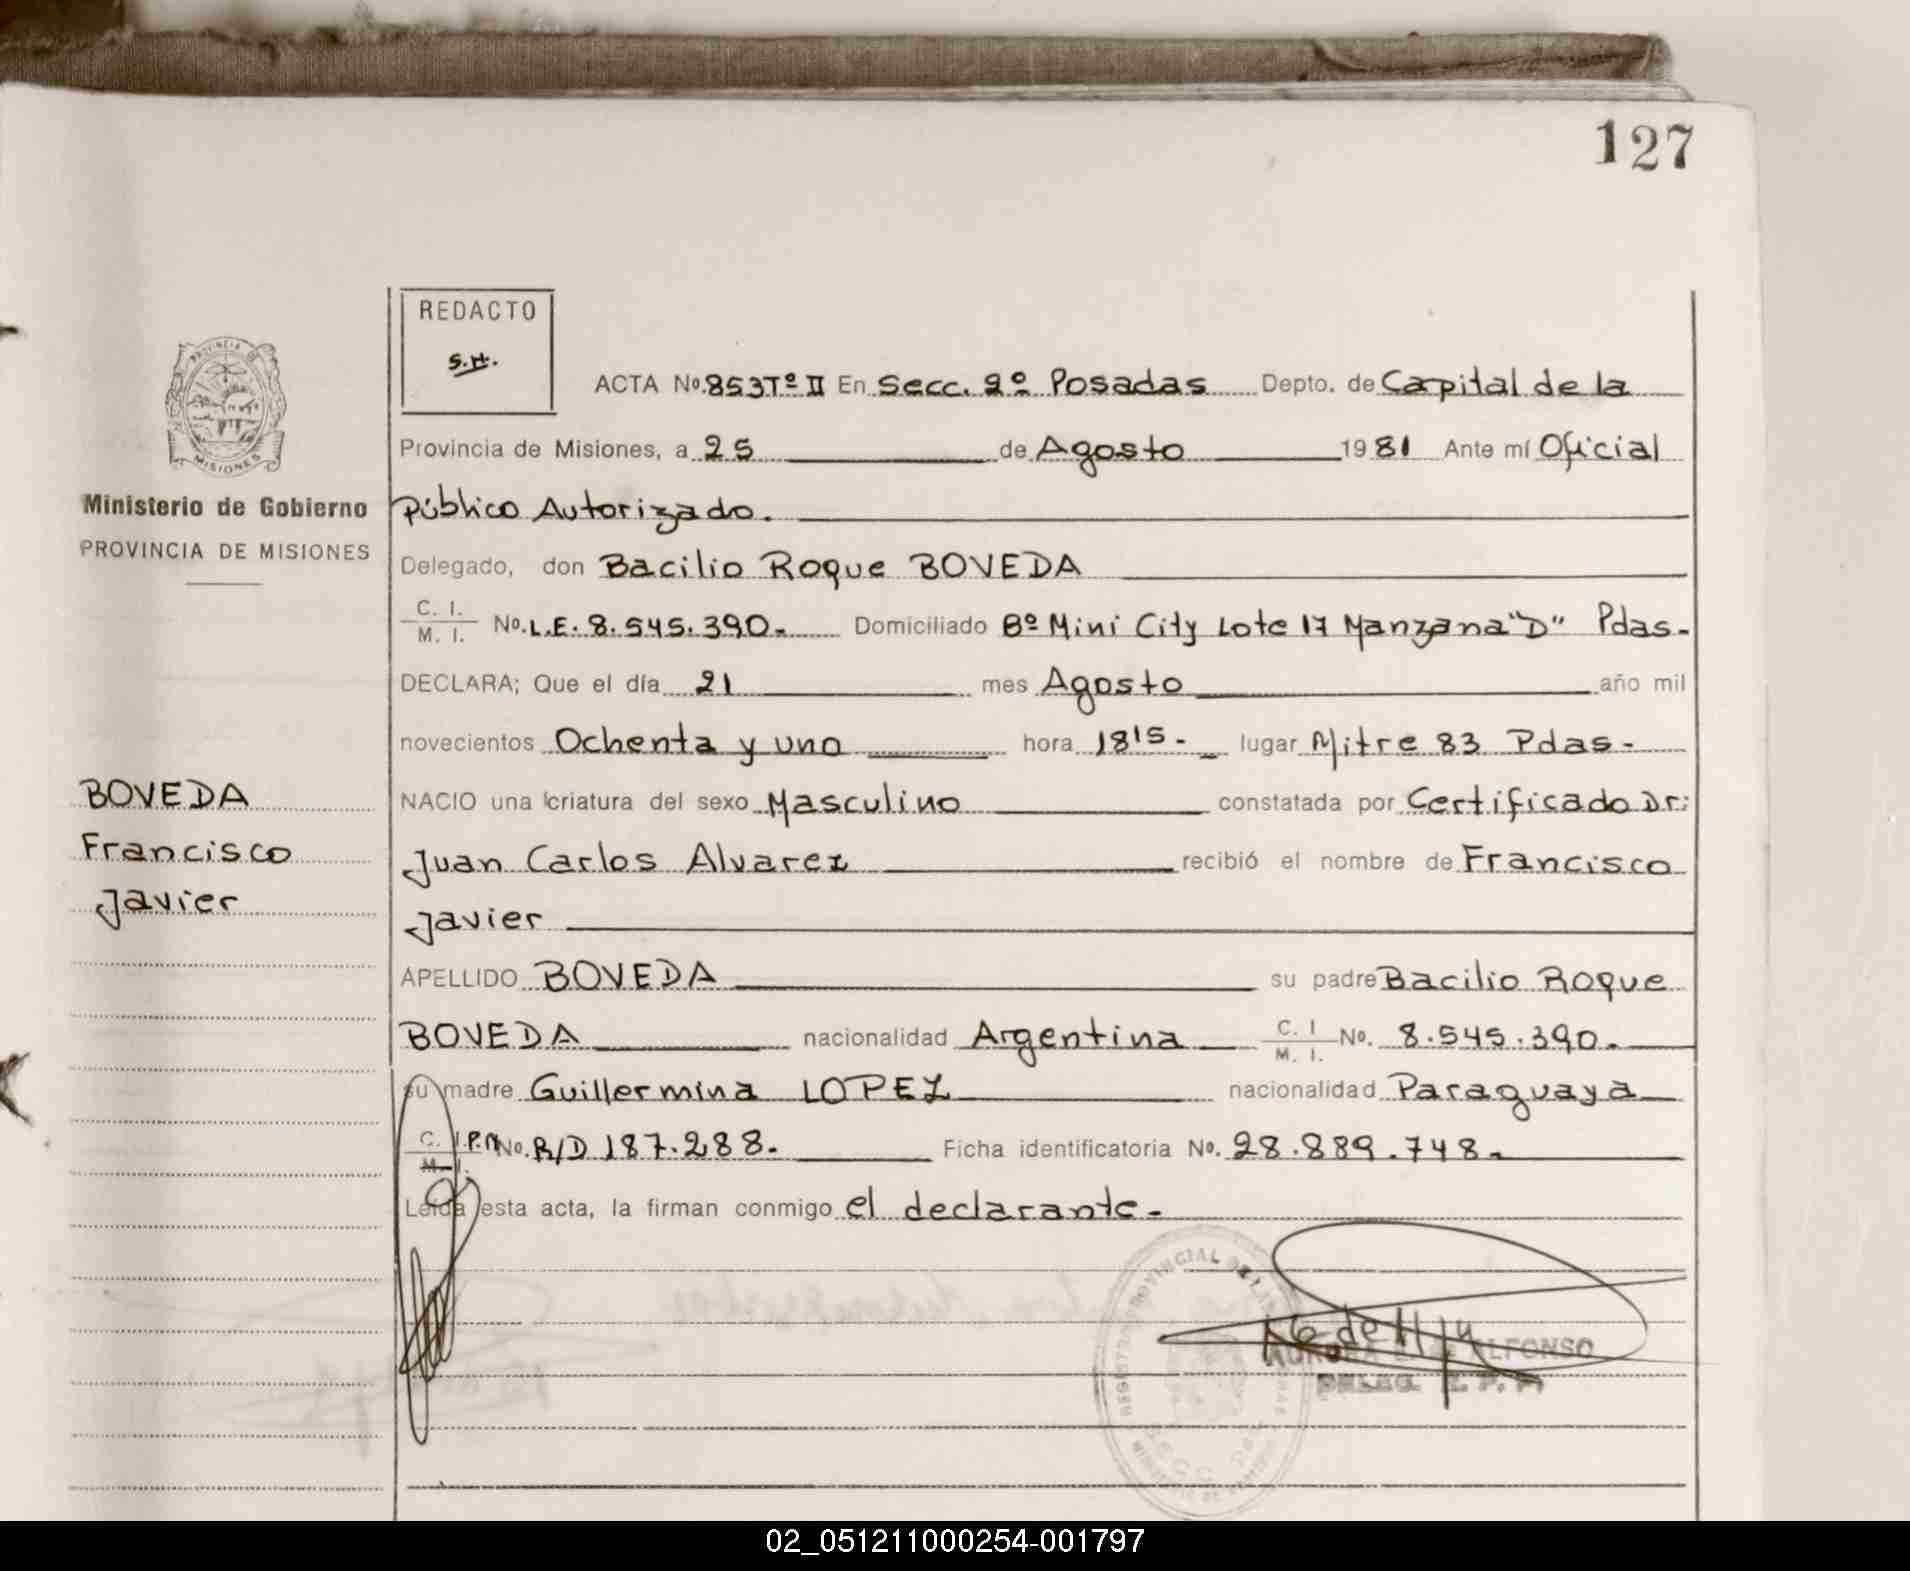 127
REDACTO
S.H.
ACTA No. 853 Tº II En Secc. 2º Posadas Depto. de Capital de la
Provincia de Misiones, a 25 de Agosto 1981 Ante mí Oficial
Ministerio de Gobierno
PROVINCIA DE MISIONES
Público Autorizado.
Delegado, don Bacilio Roque BOVEDA
C. I.
M. I. No. L.E. 8.545.390.- Domiciliado Bº Mini City Lote 17 Manzana "D" Pdas.-
DECLARA; Que el día 21 mes Agosto año mil
novecientos Ochenta y uno hora 18 15.- lugar Mitre 83 Pdas.-
BOVEDA
Francisco
Javier
NACIO una criatura del sexo Masculino constatada por Certificado Dr:
Juan Carlos Alvarez recibió el nombre de Francisco
Javier
APELLIDO BOVEDA su padre Bacilio Roque
BOVEDA nacionalidad Argentina C. I M. I. No. 8.545.390.-
su madre Guillermina LOPEZ nacionalidad Paraguaya
C. I. P.M No. R/D 187.288.- Ficha identificatoria No. 28.889.748.-
M. I.
Leída esta acta, la firman conmigo el declarante.-
ALFONSO
02_051211000254-001797